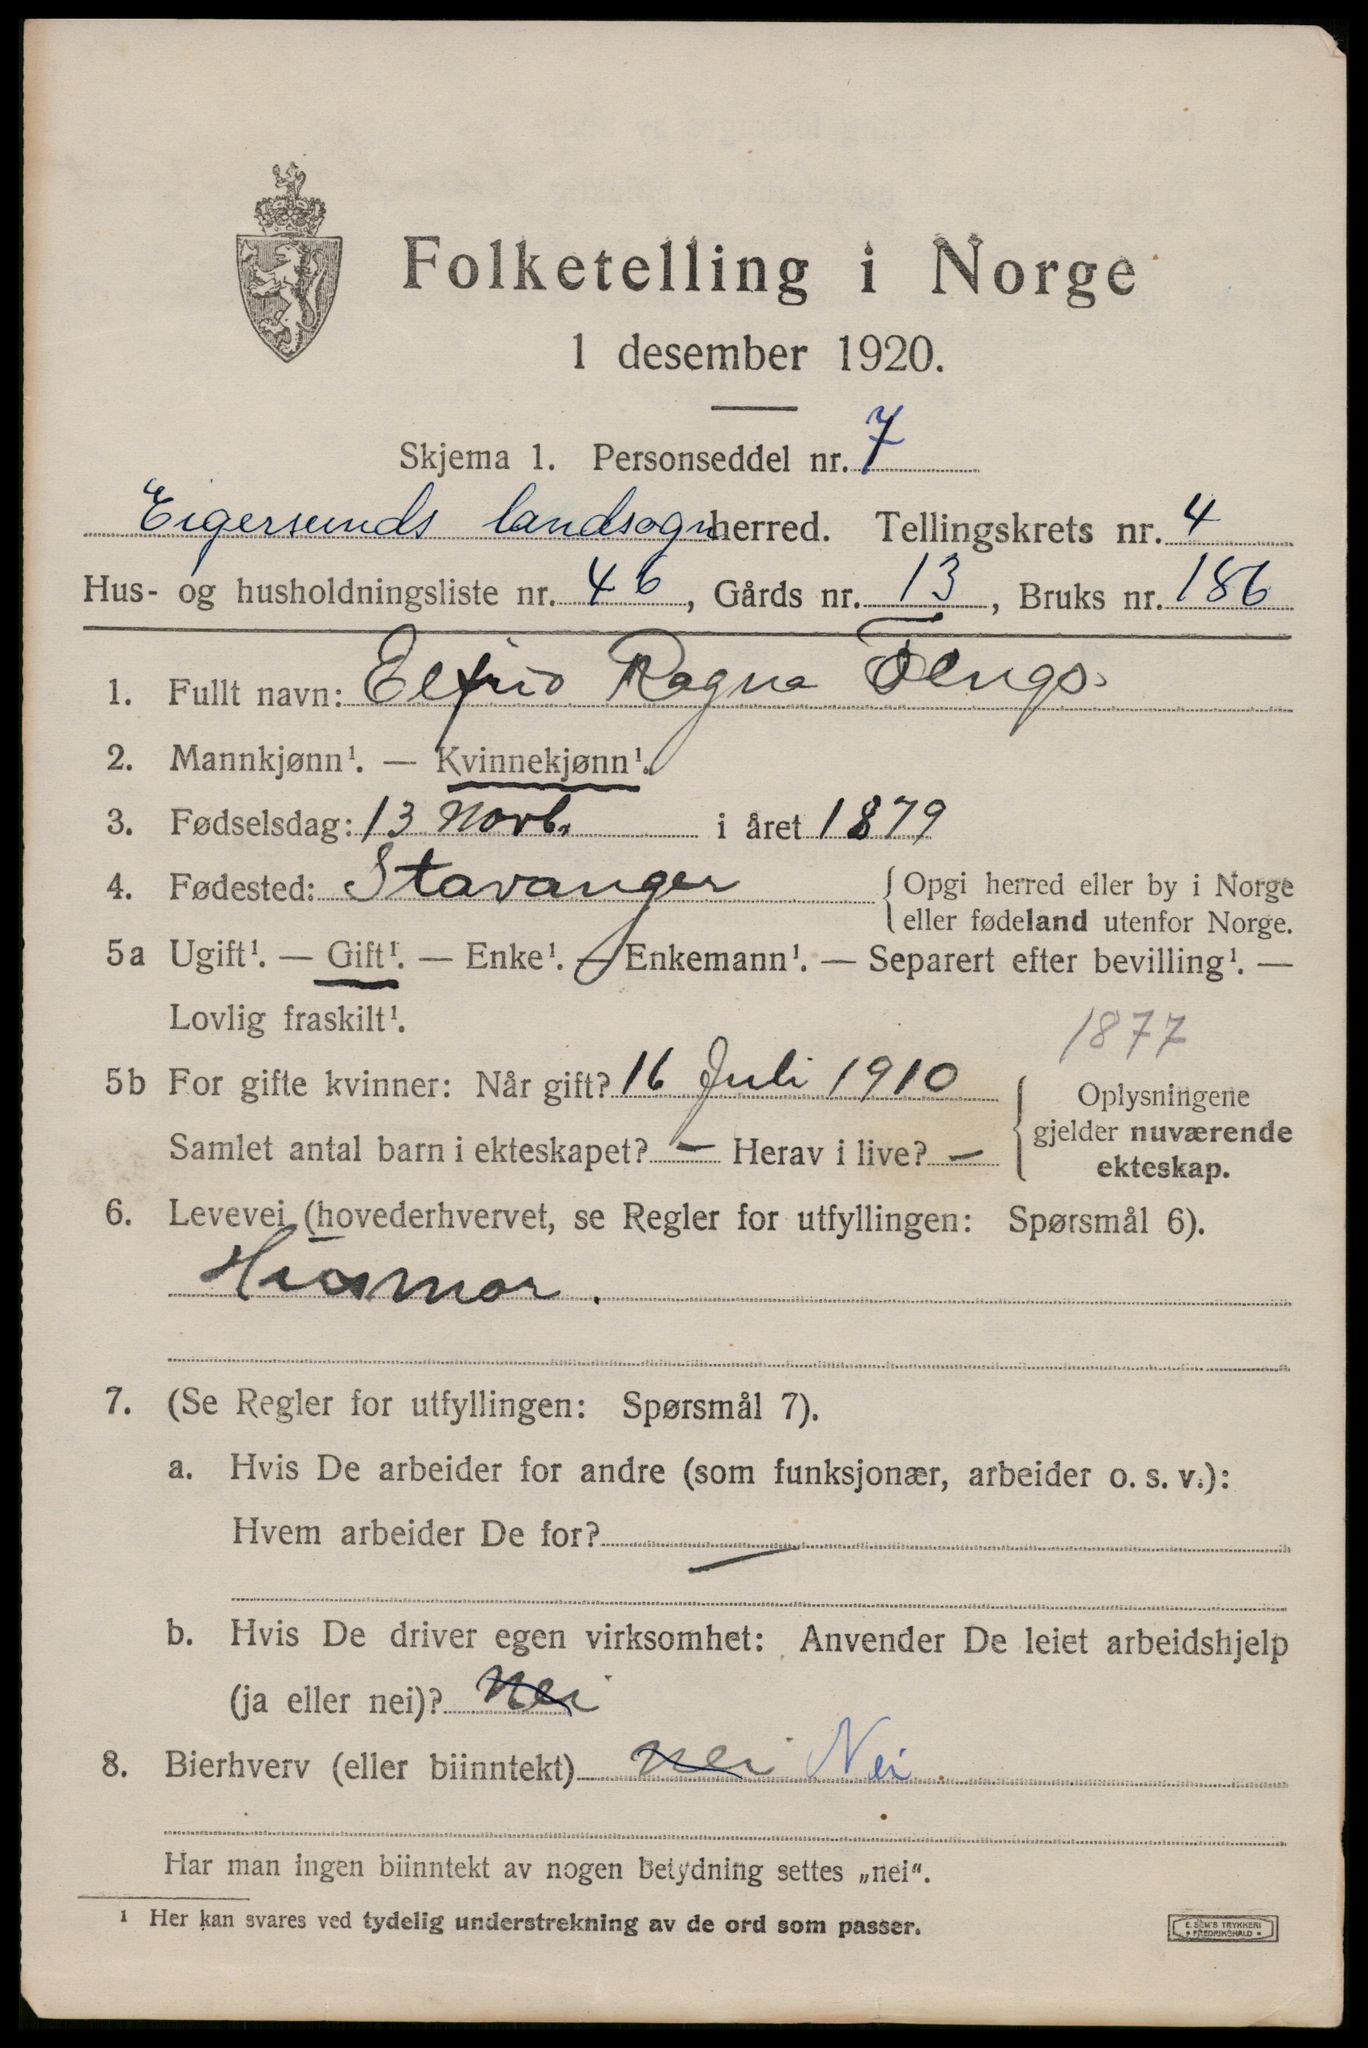 Folketelling i Norge
1 desember 1920.
Skjema 1. Personseddel nr. 7
Eigersunds landsogn herred. Tellingskrets nr. 4
Hus- og husholdningsliste nr. 46, Gårds nr. 13, Bruks nr. 186
1. Fullt navn: Elfrid Ragna Tengs.
2. Mannkjønn¹. — Kvinnekjønn¹.
3. Fødselsdag: 13 Novb. i året 1879
4. Fødested: Stavanger { Opgi herred eller by i Norge
eller fødeland utenfor Norge.
5a Ugift¹. — Gift¹. — Enke¹. — Enkemann¹. — Separert efter bevilling¹. —
Lovlig fraskilt¹.
1877
5b For gifte kvinner: Når gift? 16 Juli 1910 { Oplysningene
gjelder nuværende
Samlet antal barn i ekteskapet? — Herav i live? —
ekteskap.
6. Levevei (hovederhvervet, se Regler for utfyllingen: Spørsmål 6).
Husmor.
7. (Se Regler for utfyllingen: Spørsmål 7).
a. Hvis De arbeider for andre (som funksjonær, arbeider o. s. v.):
Hvem arbeider De for? —
b. Hvis De driver egen virksomhet: Anvender De leiet arbeidshjelp
(ja eller nei)? Nei
8. Bierhverv (eller biinntekt) nei Nei.
Har man ingen biinntekt av nogen betydning settes „nei".
¹ Her kan svares ved tydelig understrekning av de ord som passer.
E. SEM'S TRYKKERI
* FREDRIKSHALD *